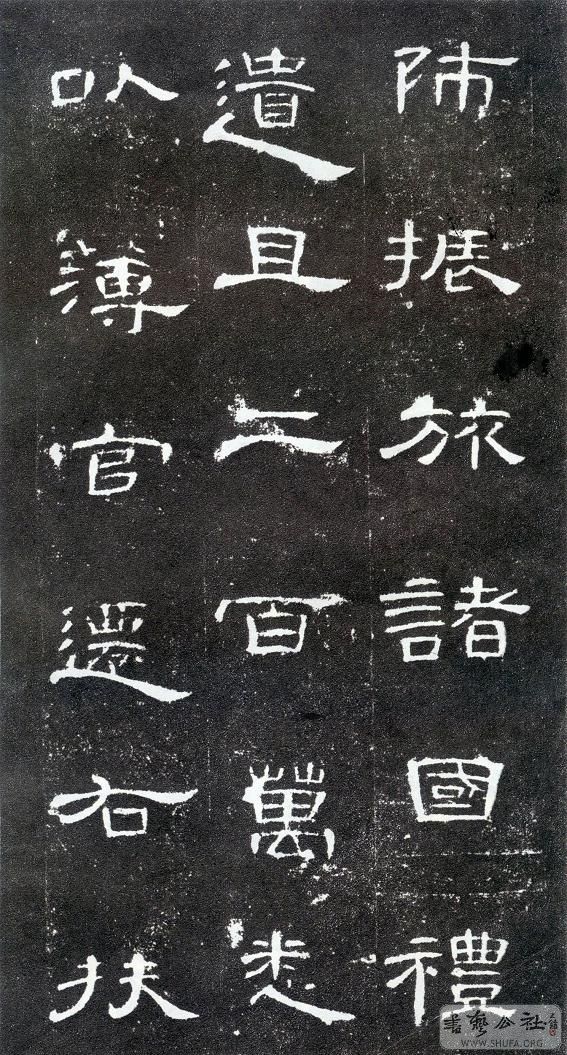 師振旅諸國禮
遺且二百萬悉
以薄官還右扶
書藝公社
WWW.SHUFA.ORG